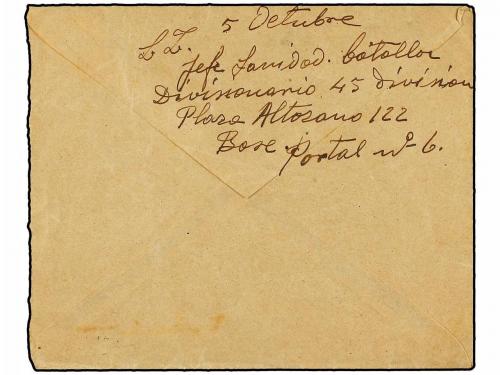 5 Octubre
L Z.
Jefe Sanidad. Batallon
Divisionario 45 division
Plaza Altosano 122
Base Portal nº 6.